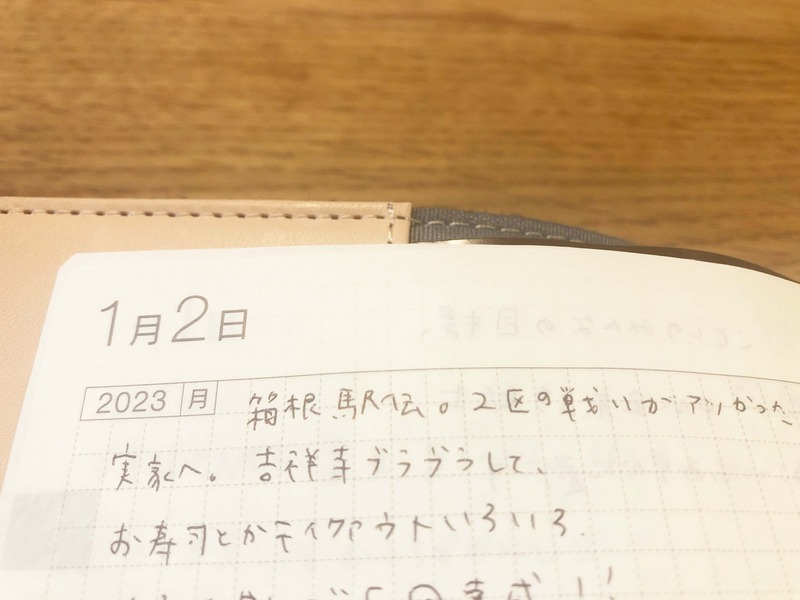 1月2日
2023 月 箱根駅伝。2区の戦いがアツかった
実家へ。吉祥寺ブラブラして、
お寿司とかテイクアウトいろいろ.